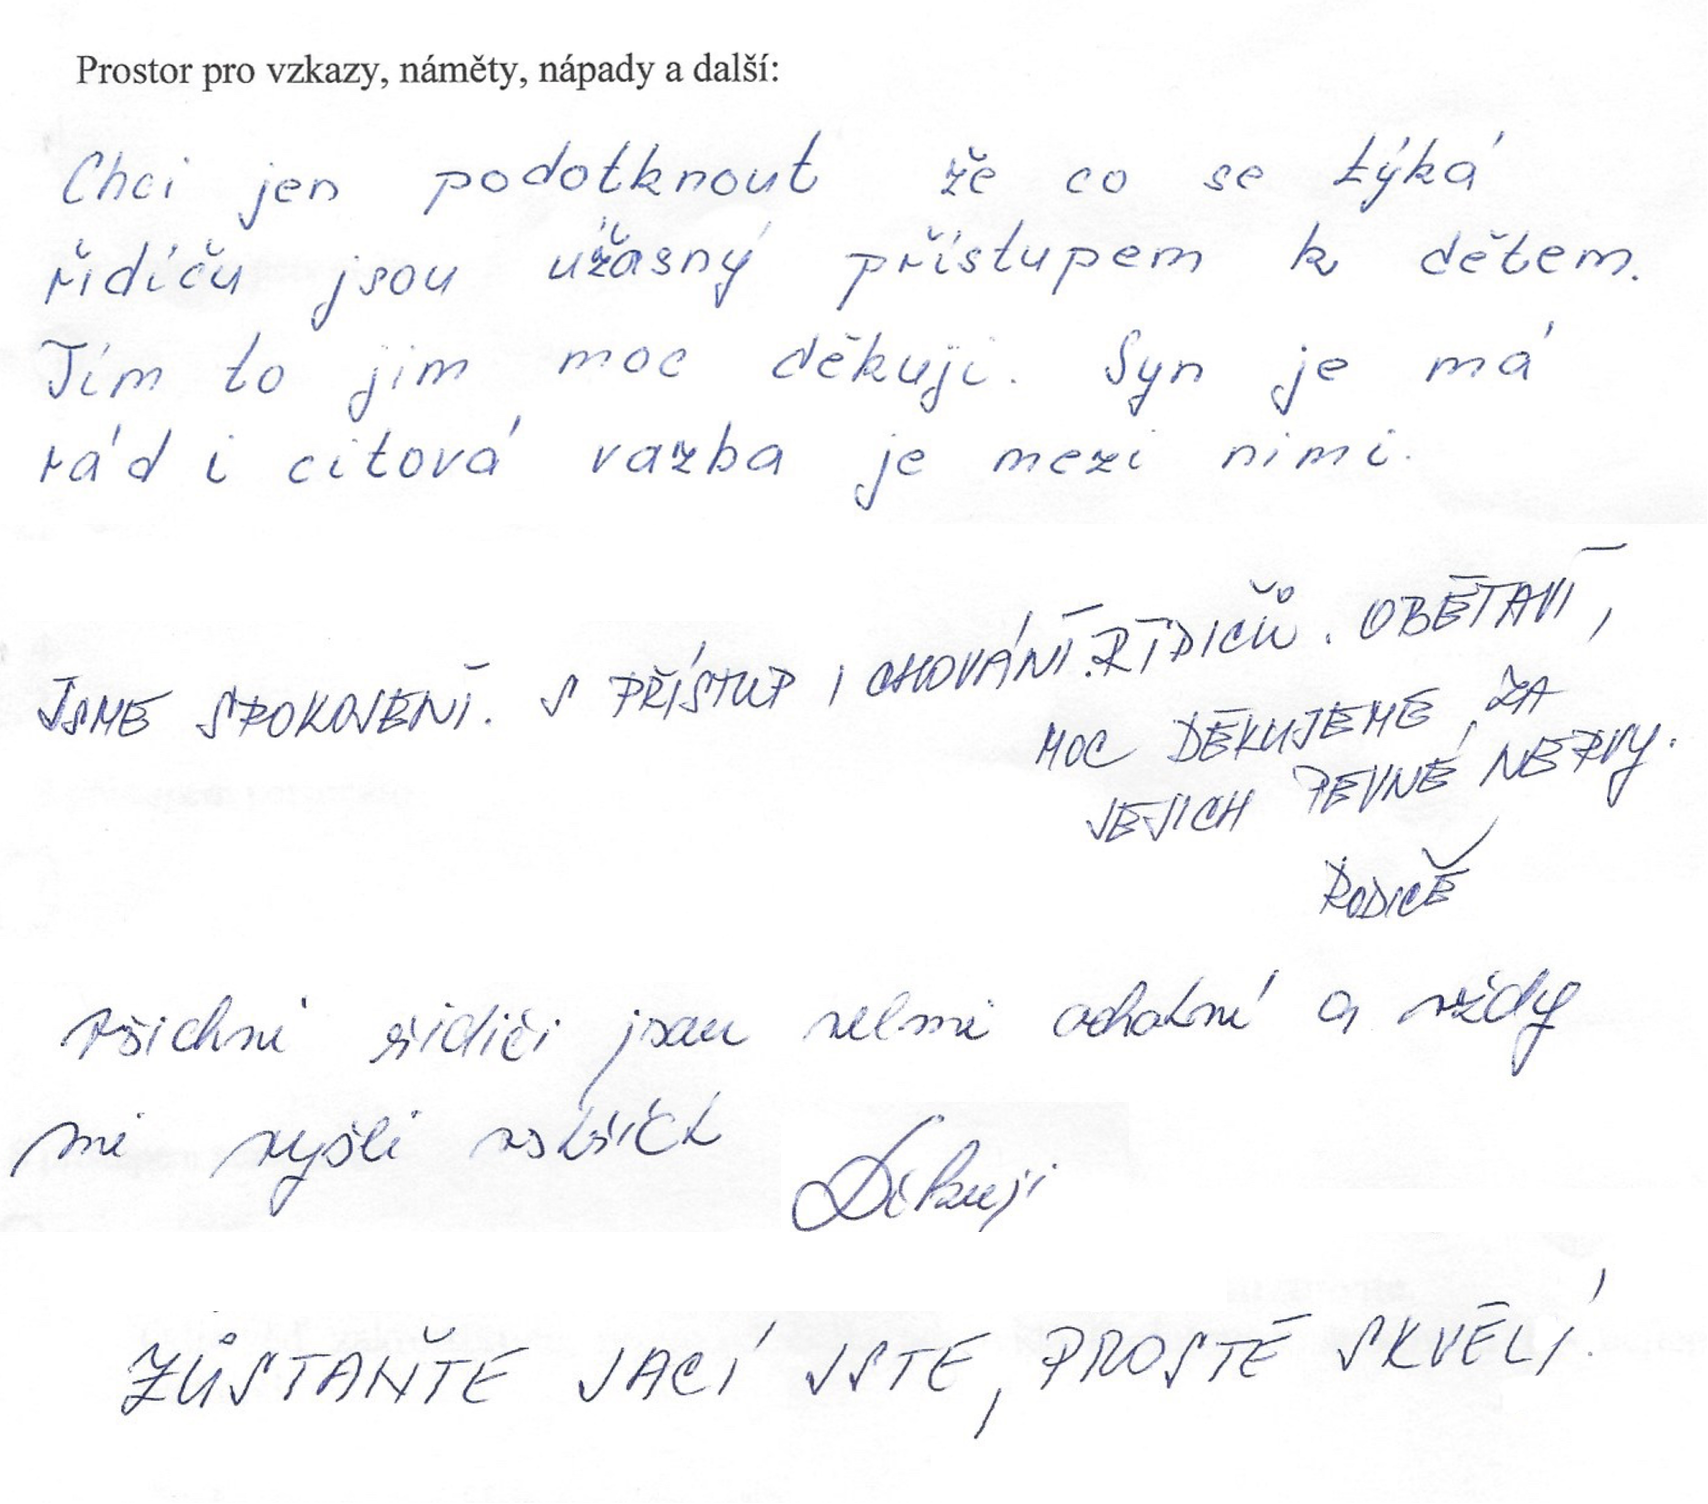 Prostor pro vzkazy, náměty, nápady a další:
Chci jen podotknout že co se týká
řidíču jsou úžasný přístupem k dětem.
Tím to jim moc děkuji. Syn je má
rád i citová vazba je mezi nimi.
JSME SPOKOJENÍ. S PŘÍSTUP I CHOVÁNÍ ŘIDIČŮ. OBĚTAVÍ,
MOC DĚKUJEME ZA
JEJICH PEVNÉ NERVY.
RODIČE
všichni řidiči jsou velmi ochotní a vždy
mi vyšli vstříct
Děkuji
ZŮSTAŇTE JACÍ JSTE, PROSTĚ SKVĚLÍ!